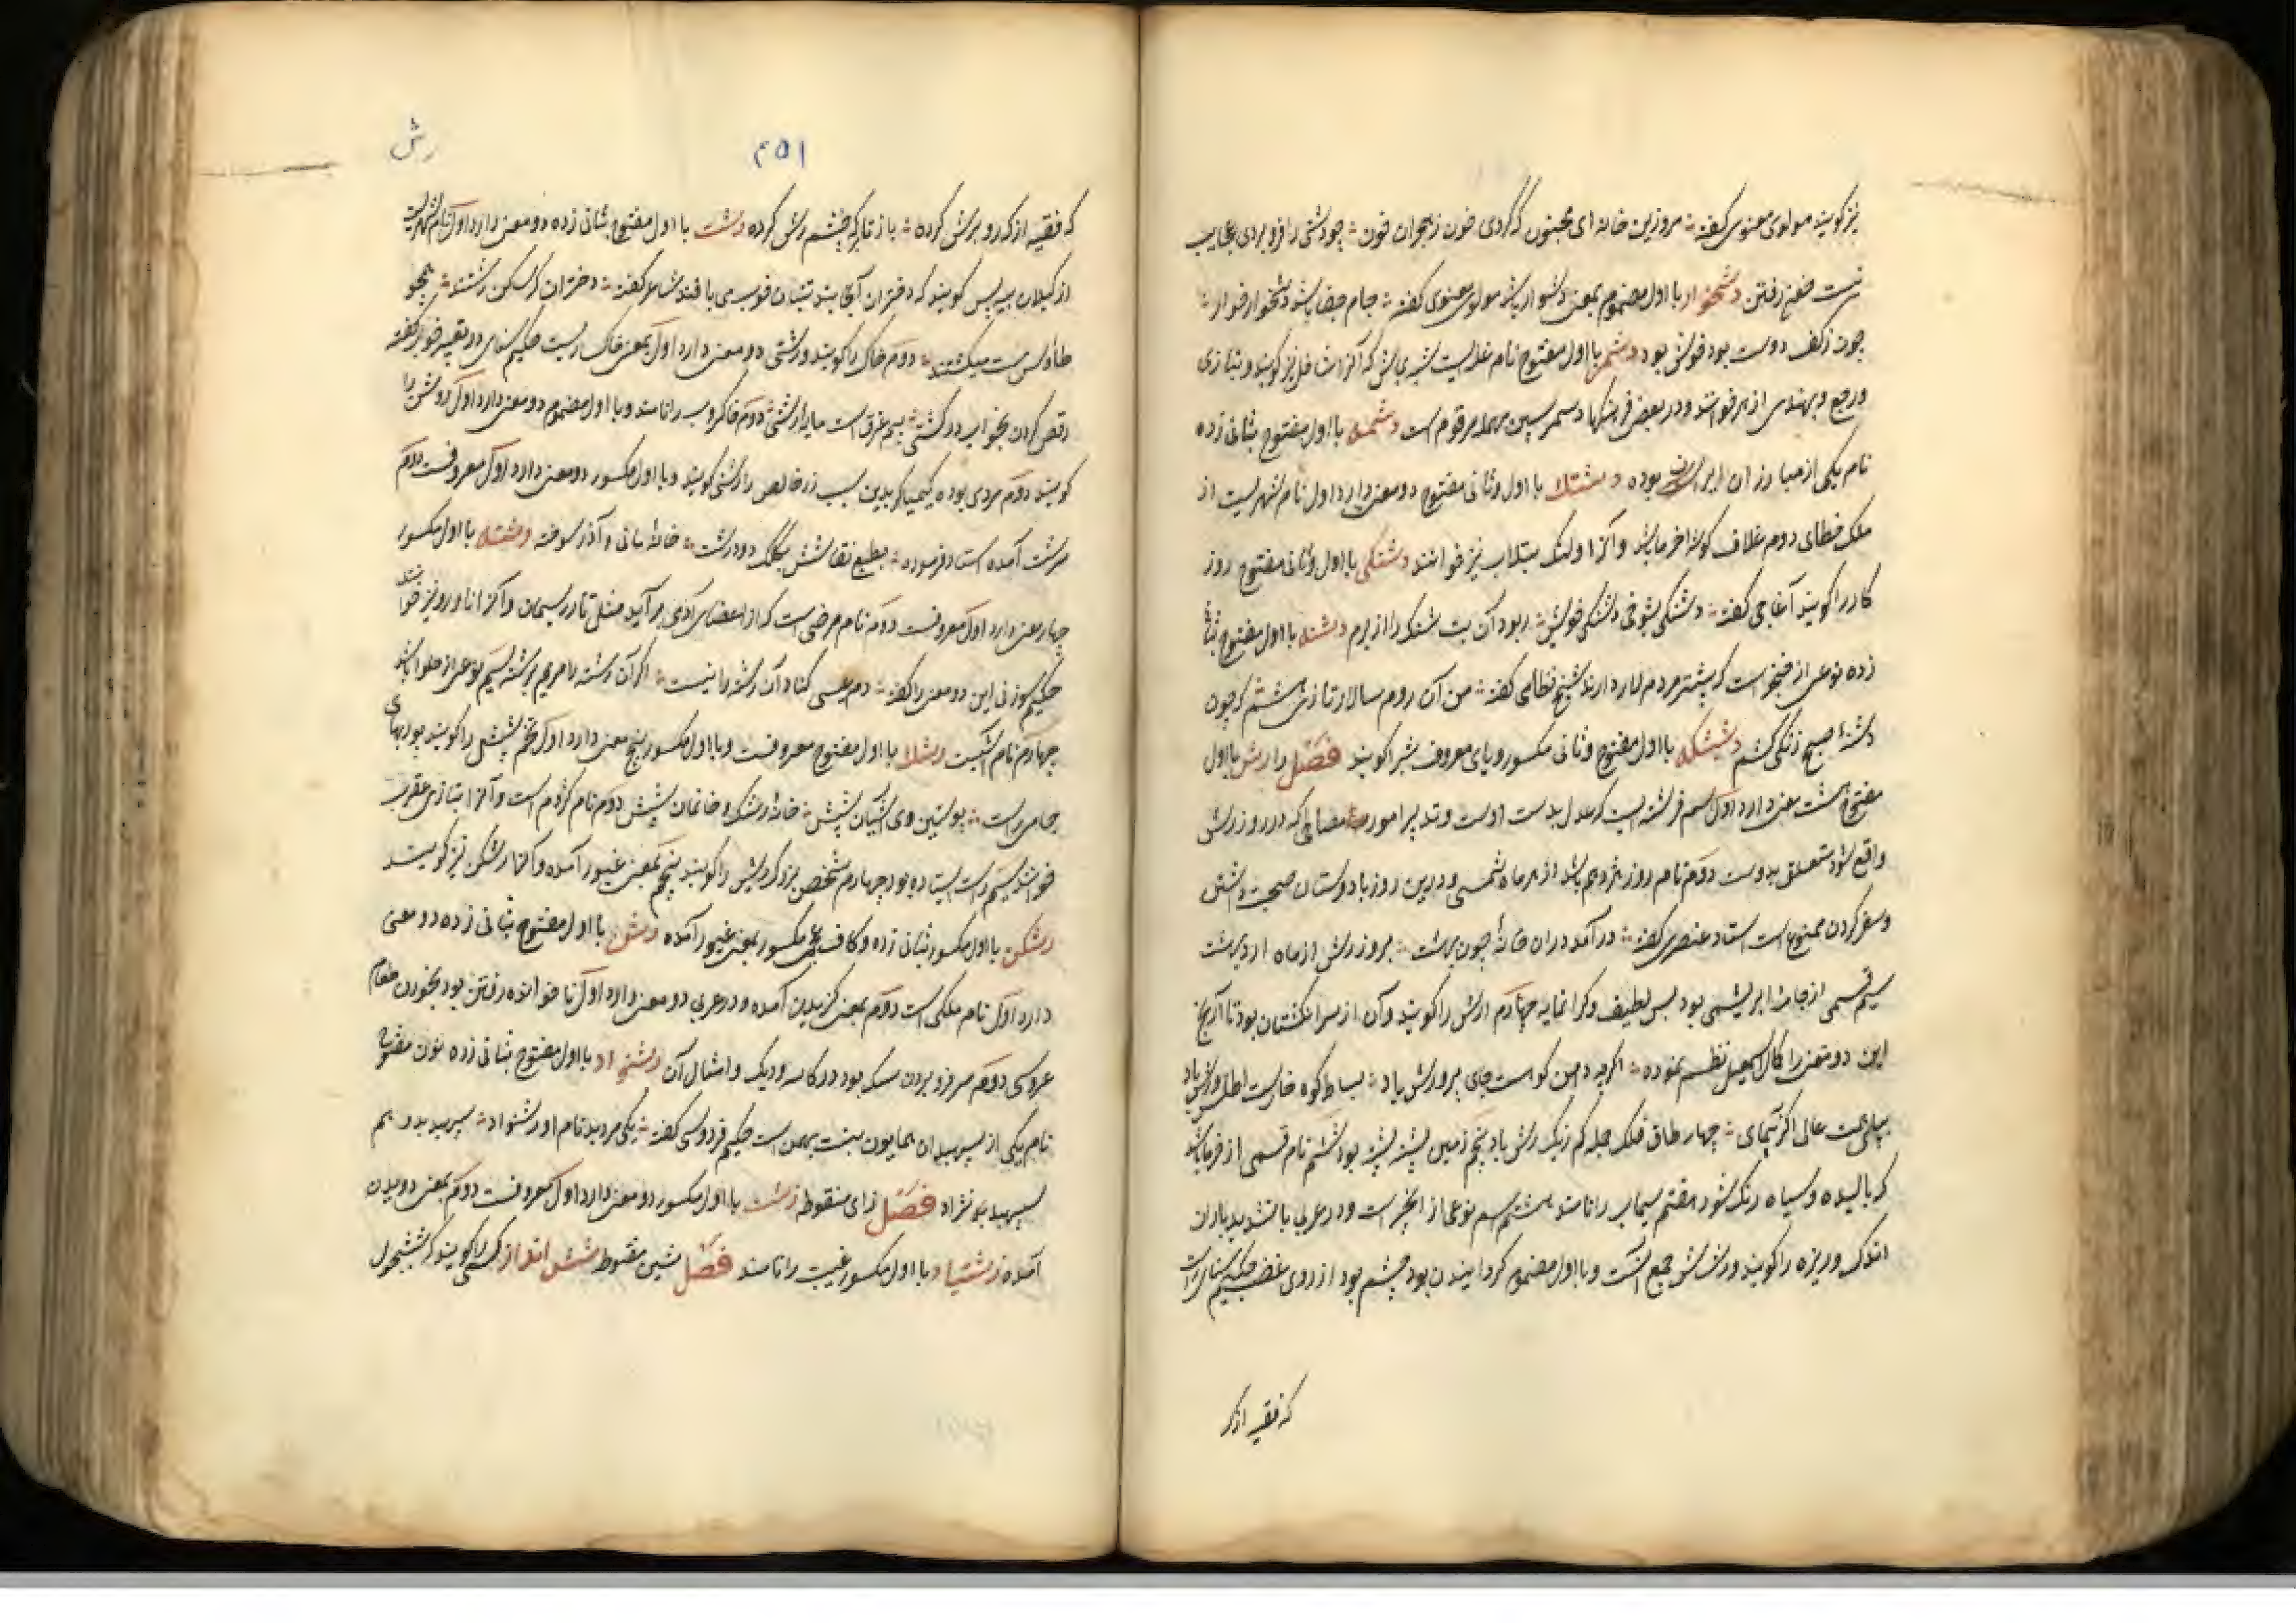 نیز گویند مولوی معنوی گفته مروزین خانه ای مجنون که گردی خون زهجران فزون چو دشتی را فرو بردی عجایب
نیست ضغم رفتن دشخوار با اول مضموم بمعنی دشوار باشد مولوی معنوی گفته جام جفا باشد دشخوار خوار
چون ز کف دوست بود خوش بود دشمر با اول مفتوح نام غله ایست شبیه بماش که آنرا نیز گویند و بتازی
و بهندی ارهر خوانند و در بعضی فرهنگها دسمر بسین مهمله مرقوم است دشمه با اول مفتوح بثانی زده
نام یکی از مبارزان ایران بوده دشتک با اول و ثانی مفتوح دو معنی دارد اول نام شهریست از
ملک خطای دوم غلاف خرما باشد و آنرا نیز خوانند دشنکی با اول و ثانی مفتوح روز
کار را گویند آغاجی گفته دشنکی بشوخی دشنکی خویش ربود آن بت شنک را از برم دشنه با اول مفتوح بثانی
زده نوعی از خنجر است که بیشتر مردم لار دارند شیخ نظامی گفته من آن روم سالار تازی هشم که چون
دشنه صبح زنگی کشم با اول مفتوح و ثانی مکسور و یای معروف شبرا گویند فصل را رش با اول
مفتوح هشت معنی دارد اول اسم فرشته ایست که عدل بدست اوست و تدبیر امور و مصالح که در روز رش
واقع شود متعلق بدوست دوم نام روز هژدهم باشد از هر ماه شمسی و درین روز با دوستان صحبت داشتن
و سفر کردن ممنوع است استاد عنصری گفته درآمد دران خانه چون بهشت بروز رش از ماه اردیبهشت
سیم قسمی از جامه ابریشمی بود بس لطیف و گرانمایه چهارم ارش را گویند و آن از سر انگشتان بود تا آرنج
این دو معنی را کمال اسمعیل نظم نموده اگرچه دامن کوه است جای پرورش باد بساط کوه خارست اطلس و رش باد
همت عالی اگر چهار طاق فلک جمله کم زیک رش باد پنجم زمین پشته پشته بود ششم نام قسمی از خرما باشد
که بالیده و سیاه رنگ شود هفتم سیماب را نامند هشتم اسم نوعی از انجیر است و در عربی با تشدید باران
اندک و ریزه را گویند و رشاش جمع آنست و با اول مضموم گردانیدن بود چشم بود از روی غضب حکیم سنائی راست
که فقیه از کر
۲۵۱
رش
که فقیه از کدو برش کرده باز تا که بچشم رش کرده رشت با اول مفتوح بثانی زده دو معنی دارد اول نام شهریست
از گیلان بیه پس گویند که دختران آنجا بند تنبان خوب می بافند شاعر گفته دختران رشتند همچو
طاوس مست میگشتند دوم خاک را گویند و رشتی دو معنی دارد اول بمعنی خاکساریست حکیم سنائی در تعبیر خواب گفته
رقص کردن بخواب در کشتی بیم غرق است مایه زشتی دوم خاکروب را نامند و با اول مضموم دو معنی دارد اول روشن را
گویند دوم مردی بوده کیمیاگر بدین سبب زر خالص را رشتی گویند و با اول مکسور دو معنی دارد اول معروفست دوم
سرشت آمده استاد فرموده بطبع نقاشش بکلک دو درشت خانه مانی و آذر سوخته و رشته با اول مکسور
چهار معنی دارد اول معروفست دوم نام مرضی است که از اعضای آدمی برآید مثل تار ریسمان و آنرا نارو نیز خوانند
حکیم سوزنی این دو معنی را گفته دم عیسی گشاد آن رشته را نیست اگر آن رشته را مریم برشته سیم نوعی از حلوا باشد
چهارم نام آشیست رشک با اول مفتوح معروفست و با اول مکسور پنج معنی دارد اول تخم شپش را گویند پوربهای
جامی راست پوستین وی آشیان شپش خانه رشک و خانمان شپش دوم نام کژدم است و آنرا بتازی عقرب
خوانند سیم دست ایستاده بود چهارم شخص بزرگ ریش را گویند پنجم بمعنی غیور آمده و آنرا رشکن نیز گویند
رشکن با اول مکسور بثانی زده و کاف عجمی مکسور بمعنی غیور آمده رشن با اول مفتوح بثانی زده دو معنی
دارد اول نام ملکی است دوم بمعنی گزیدن آمده و در عربی دو معنی دارد اول ناخوانده رفتن بود بخوردن طعام
عروسی دوم سر فرو بردن سگ بود در کاسه و دیگ و امثال آن رشنواد با اول مفتوح بثانی زده نون مفتوح
نام یکی از سپهبدان همایون بنت بهمن است حکیم فردوسی گفته یکی مرد بد نام او رشنواد سپهبد بدو هم
سپهبد نژاد فصل زای منقوطه زشت با اول مکسور دو معنی دارد اول معروفست دوم بمعنی دیدن
آمده زشتیاد با اول مکسور غیبت را نامند فصل شین منقوط شش انداز کسی را گویند که شش بجول